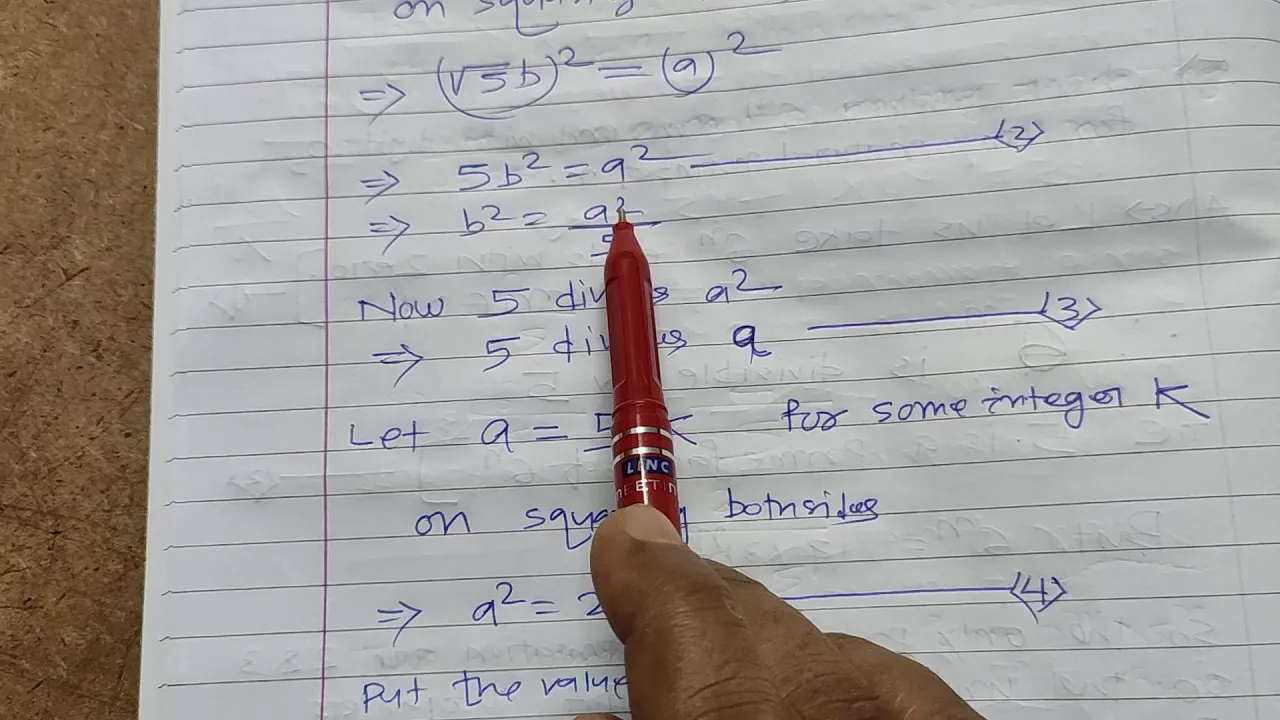 on squaring
=> (√5b)² = (a)²
=> 5b² = a² ———— (2)
=> b² = a²/5
Now 5 divides a²
=> 5 divides a ———— (3)
Let a = 5K for some integer K
on squaring bothsides
=> a² = 2 ———— (4)
Put the value
LINC
MEETIN